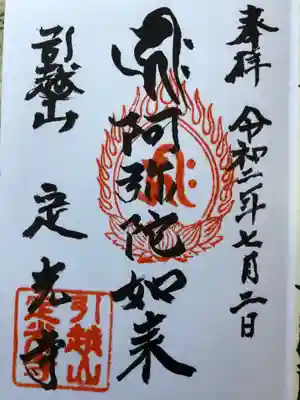 奉拝 令和二年七月二日
キリーク 阿弥陀如来
引越山 定光寺
引越山
定光寺